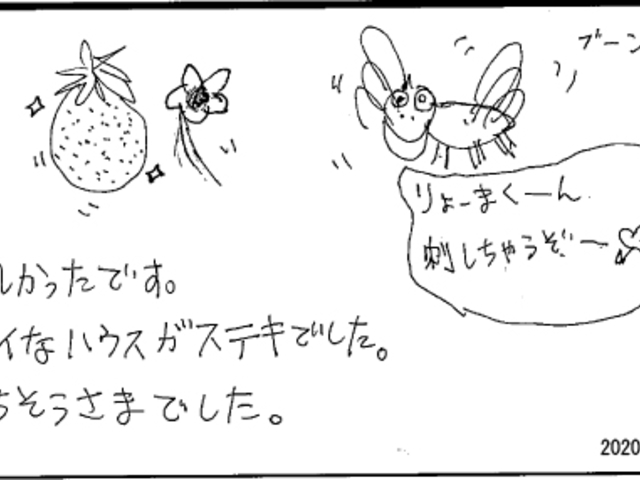 ブーン
りょーまくーん
刺しちゃうぞー
しかったです。
イなハウスがステキでした。
ちそうさまでした。
2020